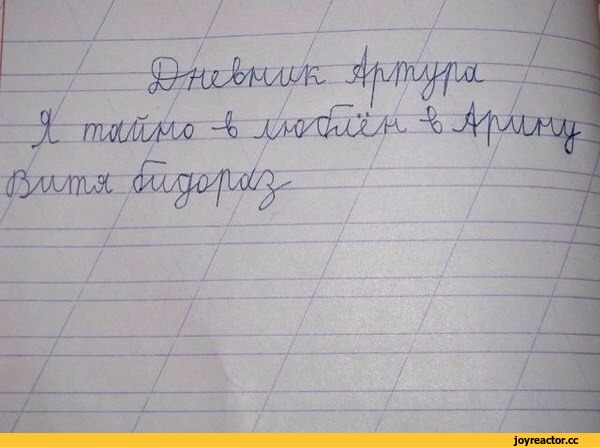 Дневник Артура
Я тайно в люблён в Арину
Витя бидораз
joyreactor.cc